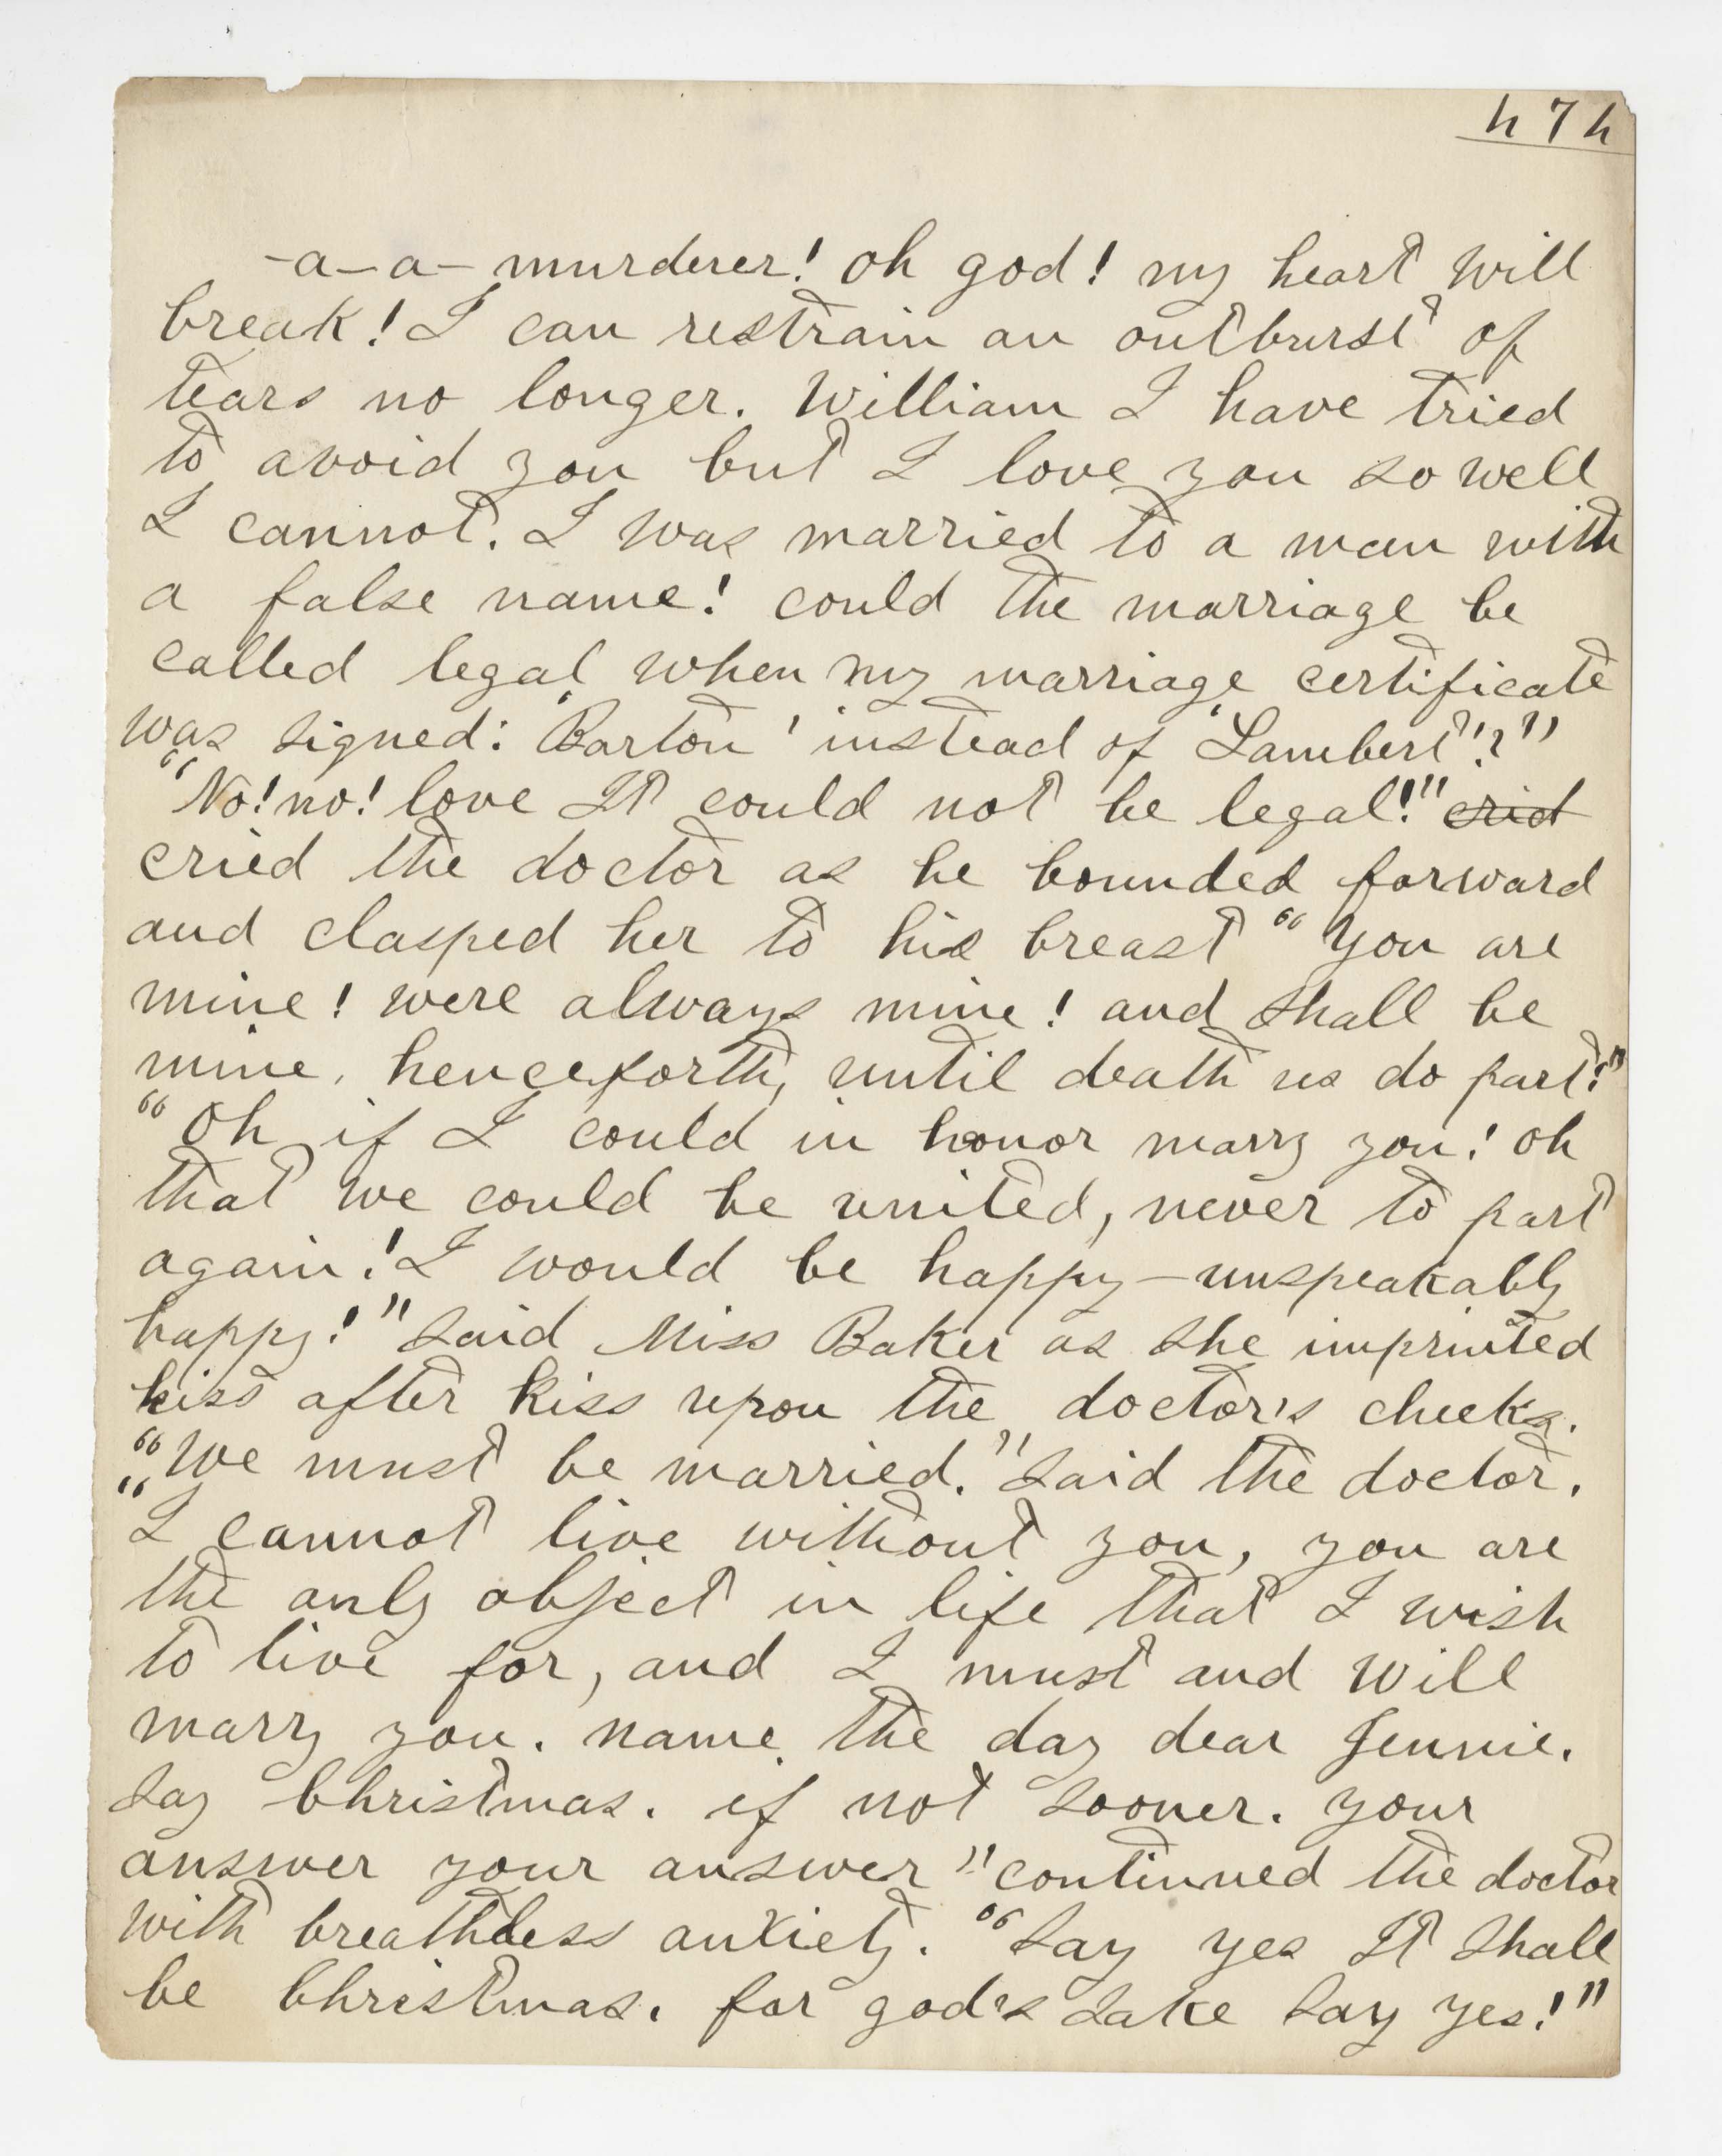 474
-a-a- murderer! oh god! my heart will
break! I can restrain an outburst of
tears no longer. William I have tried
to avoid you but I love you so well
I cannot. I was married to a man with
a false name! could the marriage be
called legal when my marriage certificate
was signed: 'Barton' instead of 'Lambert'!?"
"No! no! love It could not be legal!" crid
cried the doctor as he bounded forward
and clasped her to his breast "you are
mine! were always mine! and shall be
mine, henceforth, until death us do part!"
"Oh if I could in honor marry you! oh
that we could be united, never to part
again! I would be happy - unspeakably
happy!" said Miss Baker as she imprinted
kiss after kiss upon the doctor's cheeks.
"We must be married." said the doctor.
"I cannot live without you, you are
the only object in life that I wish
to live for, and I must and will
marry you. name the day dear Jennie.
say Christmas. if not sooner. your
answer your answer" continued the doctor
with breathless anxiety. "say yes It shall
be Christmas. for god's sake say yes!"